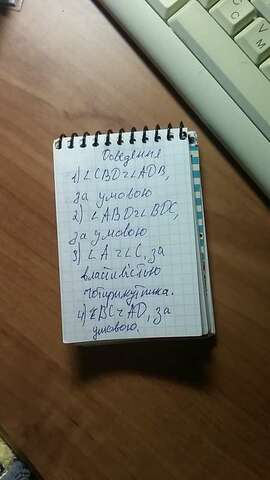 Доведення
1) ∠CBD=∠ADB,
за умовою
2) ∠ABD=∠BDC,
за умовою
3) ∠A=∠C, за
властивістю
чотирикутника.
4) BC=AD, за
умовою.